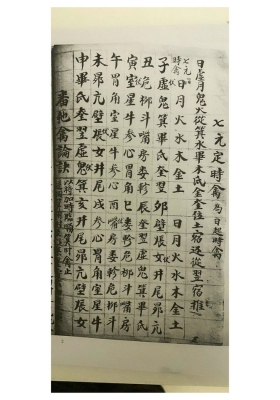 七元定時禽
日虛月鬼火從箕水畢木氐金奎位土宿還從翌宿推
七元時禽 日月火水木金土 日月火水木金土
子虛鬼箕畢氐奎翌 卯壁張女井尾昴亢
丑危柳斗觜房婁軫 辰奎翌虛鬼箕畢氐
寅室星牛參心胃角 巳婁軫危柳斗觜房
午胃角室星牛參心 酉觜房婁軫危柳斗
未昴亢壁張女井尾 戌參心胃角室星牛
申畢氐奎翌虛鬼箕 亥井尾昴亢壁張女
番他禽論訣